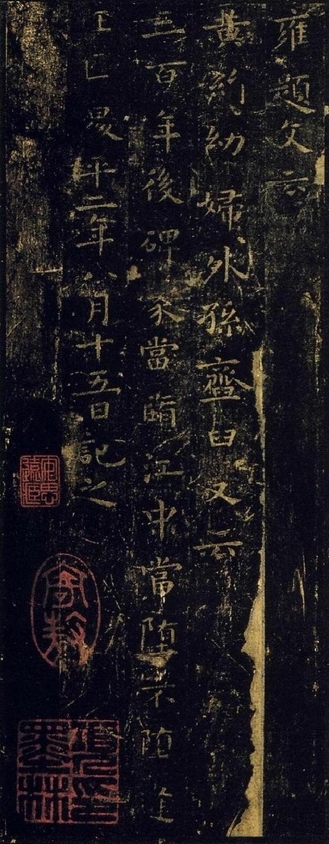 雍題文云
黃絹幼婦外孫齏臼又云
三百年後碑冢當墮江中當墮不墮逢
王叵昇平二年八月十五日記之